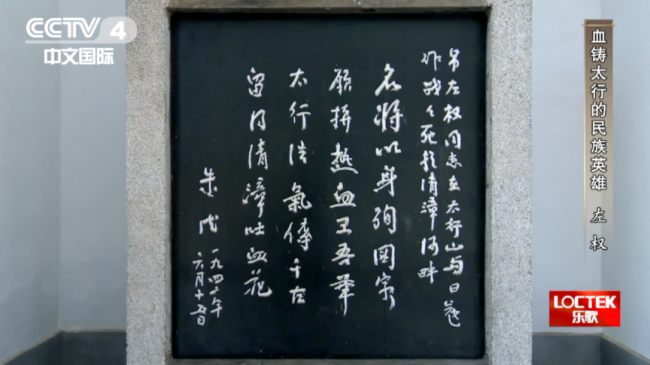 CCTV 4
中文国际
血铸太行的民族英雄 左权
吊左权同志在太行山与日寇
作战々死於清漳河畔
名将以身殉國家
願拼熱血卫吾華
太行浩氣傳千古
留得清漳吐血花
朱德
一九四二年
六月十五日
LOCTEK
乐歌